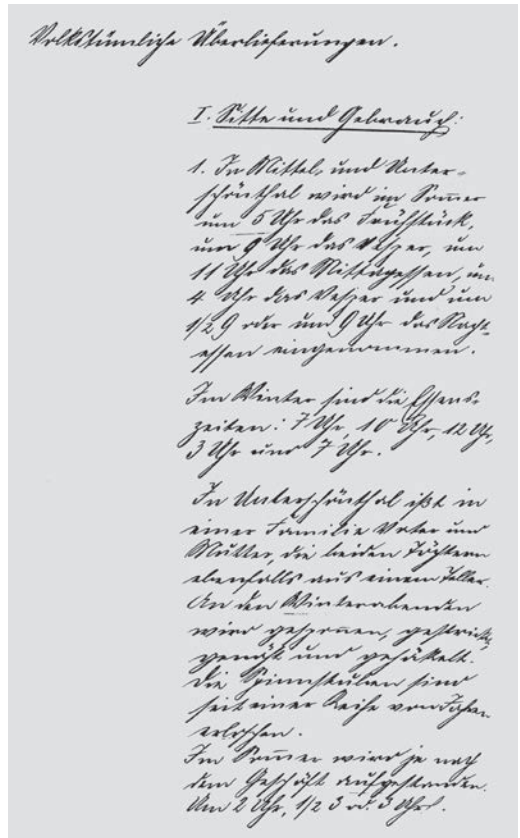 Volkstümliche Überlieferungen.
I. Sitte und Gebrauch:
1. In Mittel- und Unter-
schönthal wird im Sommer
um 5 Uhr das Frühstück,
um 9 Uhr das Vesper, um
11 Uhr das Mittagessen, um
4 Uhr das Vesper und um
1/2 9 oder um 9 Uhr das Nacht-
essen eingenommen.
Im Winter sind die Essens-
zeiten: 7 Uhr, 10 Uhr, 12 Uhr,
3 Uhr und 7 Uhr.
In Unterschönthal ißt in
einer Familie Vater und
Mutter, die beiden Töchtern
ebenfalls aus einem Teller.
An den Winterabenden
wird gesponnen, gestrickt,
genäht und gehäkelt.
Die Spinnstuben sind
seit einer Reihe von Jahren
erloschen.
Im Sommer wird je nach
dem Geschäft aufgestanden.
Um 2 Uhr, 1/2 3 od. 3 Uhr.